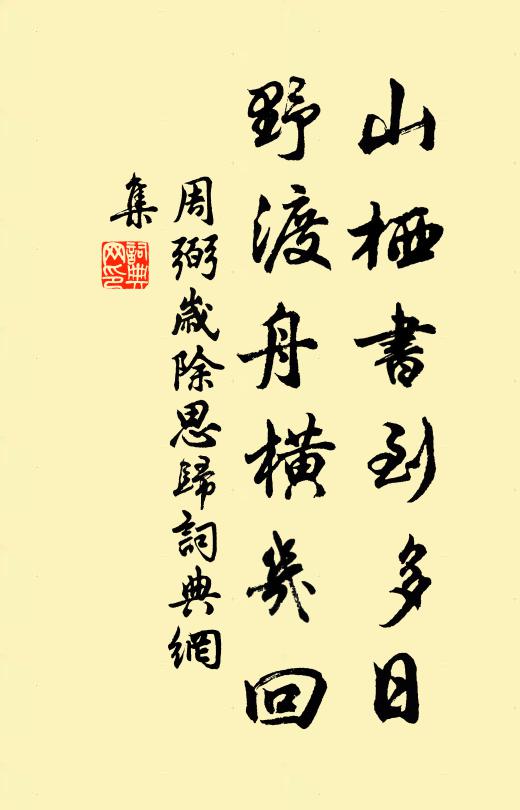 山栖書到多日
野渡舟橫幾回
周弼歲除思歸詞典網
集
詞典
网印